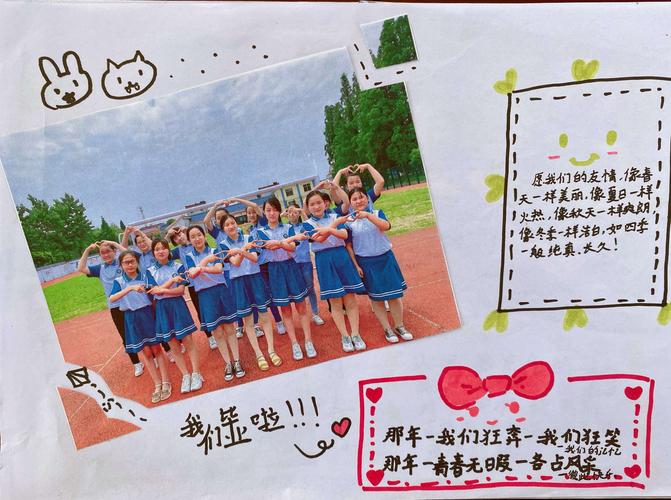 愿我们的友情,像春
天一样美丽,像夏日一样
火热,像秋天一样爽朗
像冬季一样洁白,如四季
一般纯真、长久!
我们毕业啦!!!
那年一我们狂奔一我们狂笑
我们的记忆
那年一青春无暇一各占风采